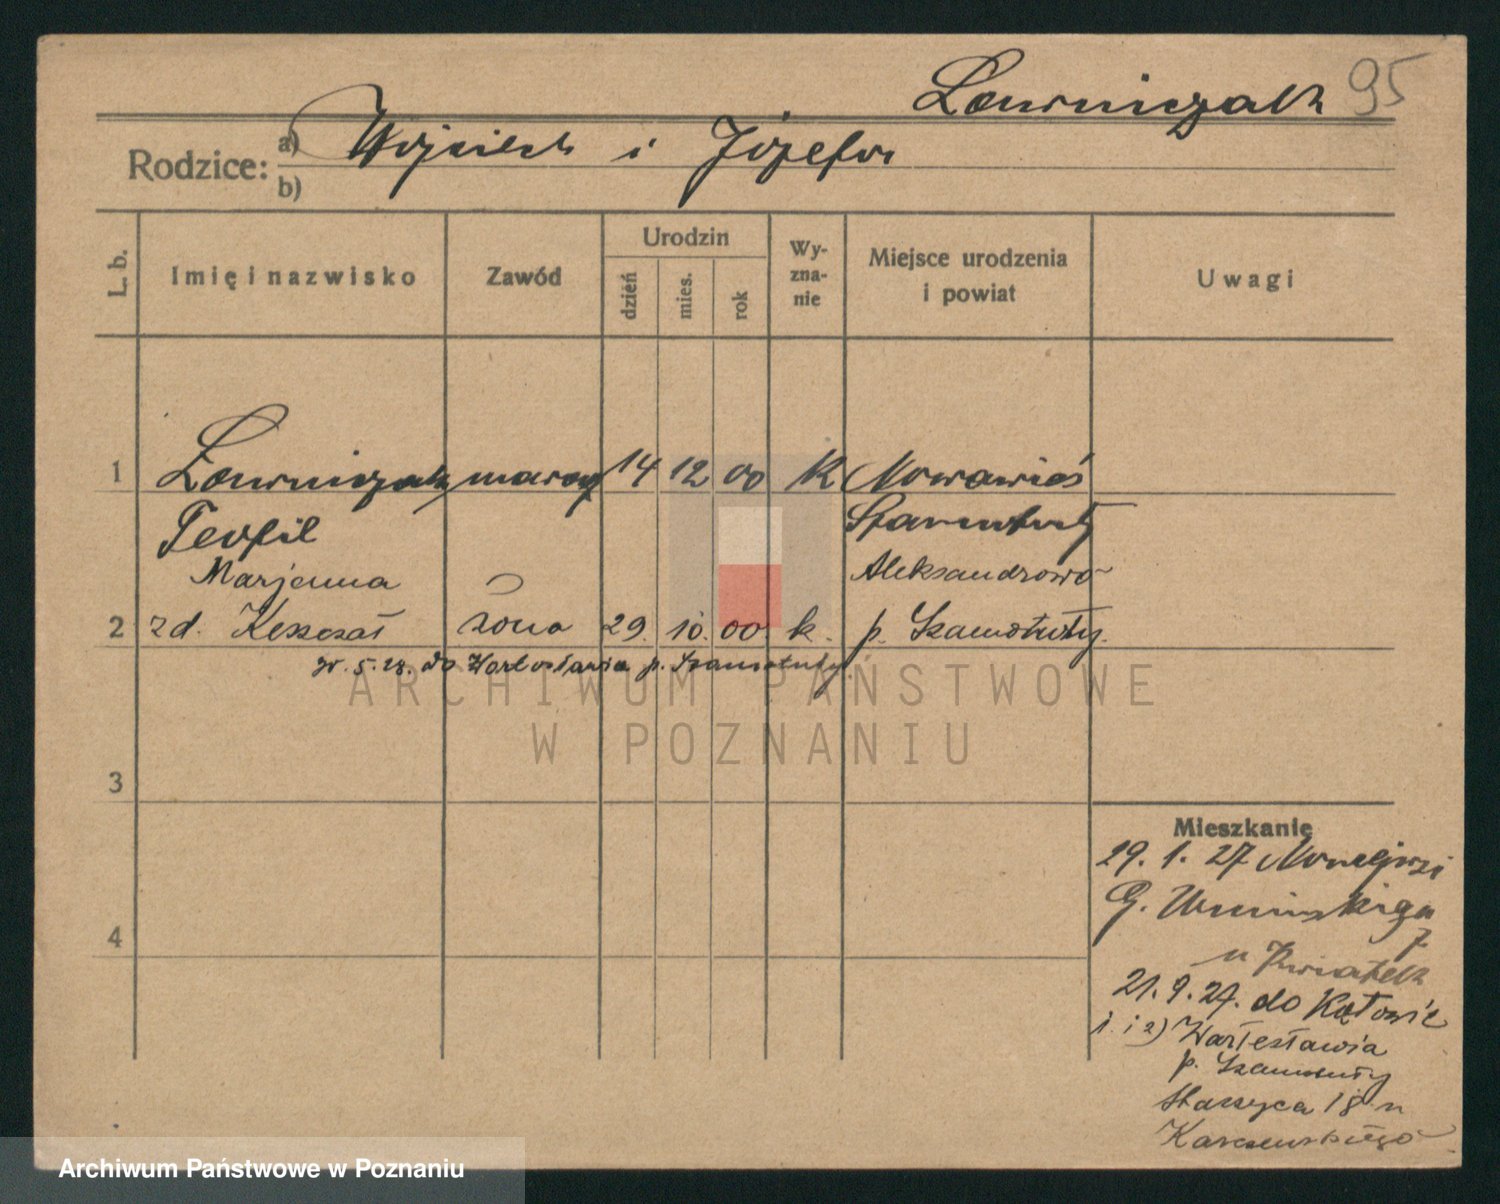 Ławniczak 95
Rodzice: a) Wojciech i Józefa
b)
L. b.
Imię i nazwisko
Zawód
Urodzin
dzień
mies.
rok
Wy-
zna-
nie
Miejsce urodzenia
i powiat
Uwagi
1 Ławniczak 14 12 00 K Nowawieś
Teofil Szamotuły
Marjanna Aleksandrowo
2 zd. żona 29. 10. 00 k. p. Szamotuły.
5. 28. do p. Szamotuły
ARCHIWUM PAŃSTWOWE
W POZNANIU
3
4
Mieszkanie
29. 1. 27
G. Wu
7
u Kwiatek
21. 9. 27. do
1. i 2) Wartosławia
p. Szamotuły
Staszyca 18 u
Karczewskiego
Archiwum Państwowe w Poznaniu